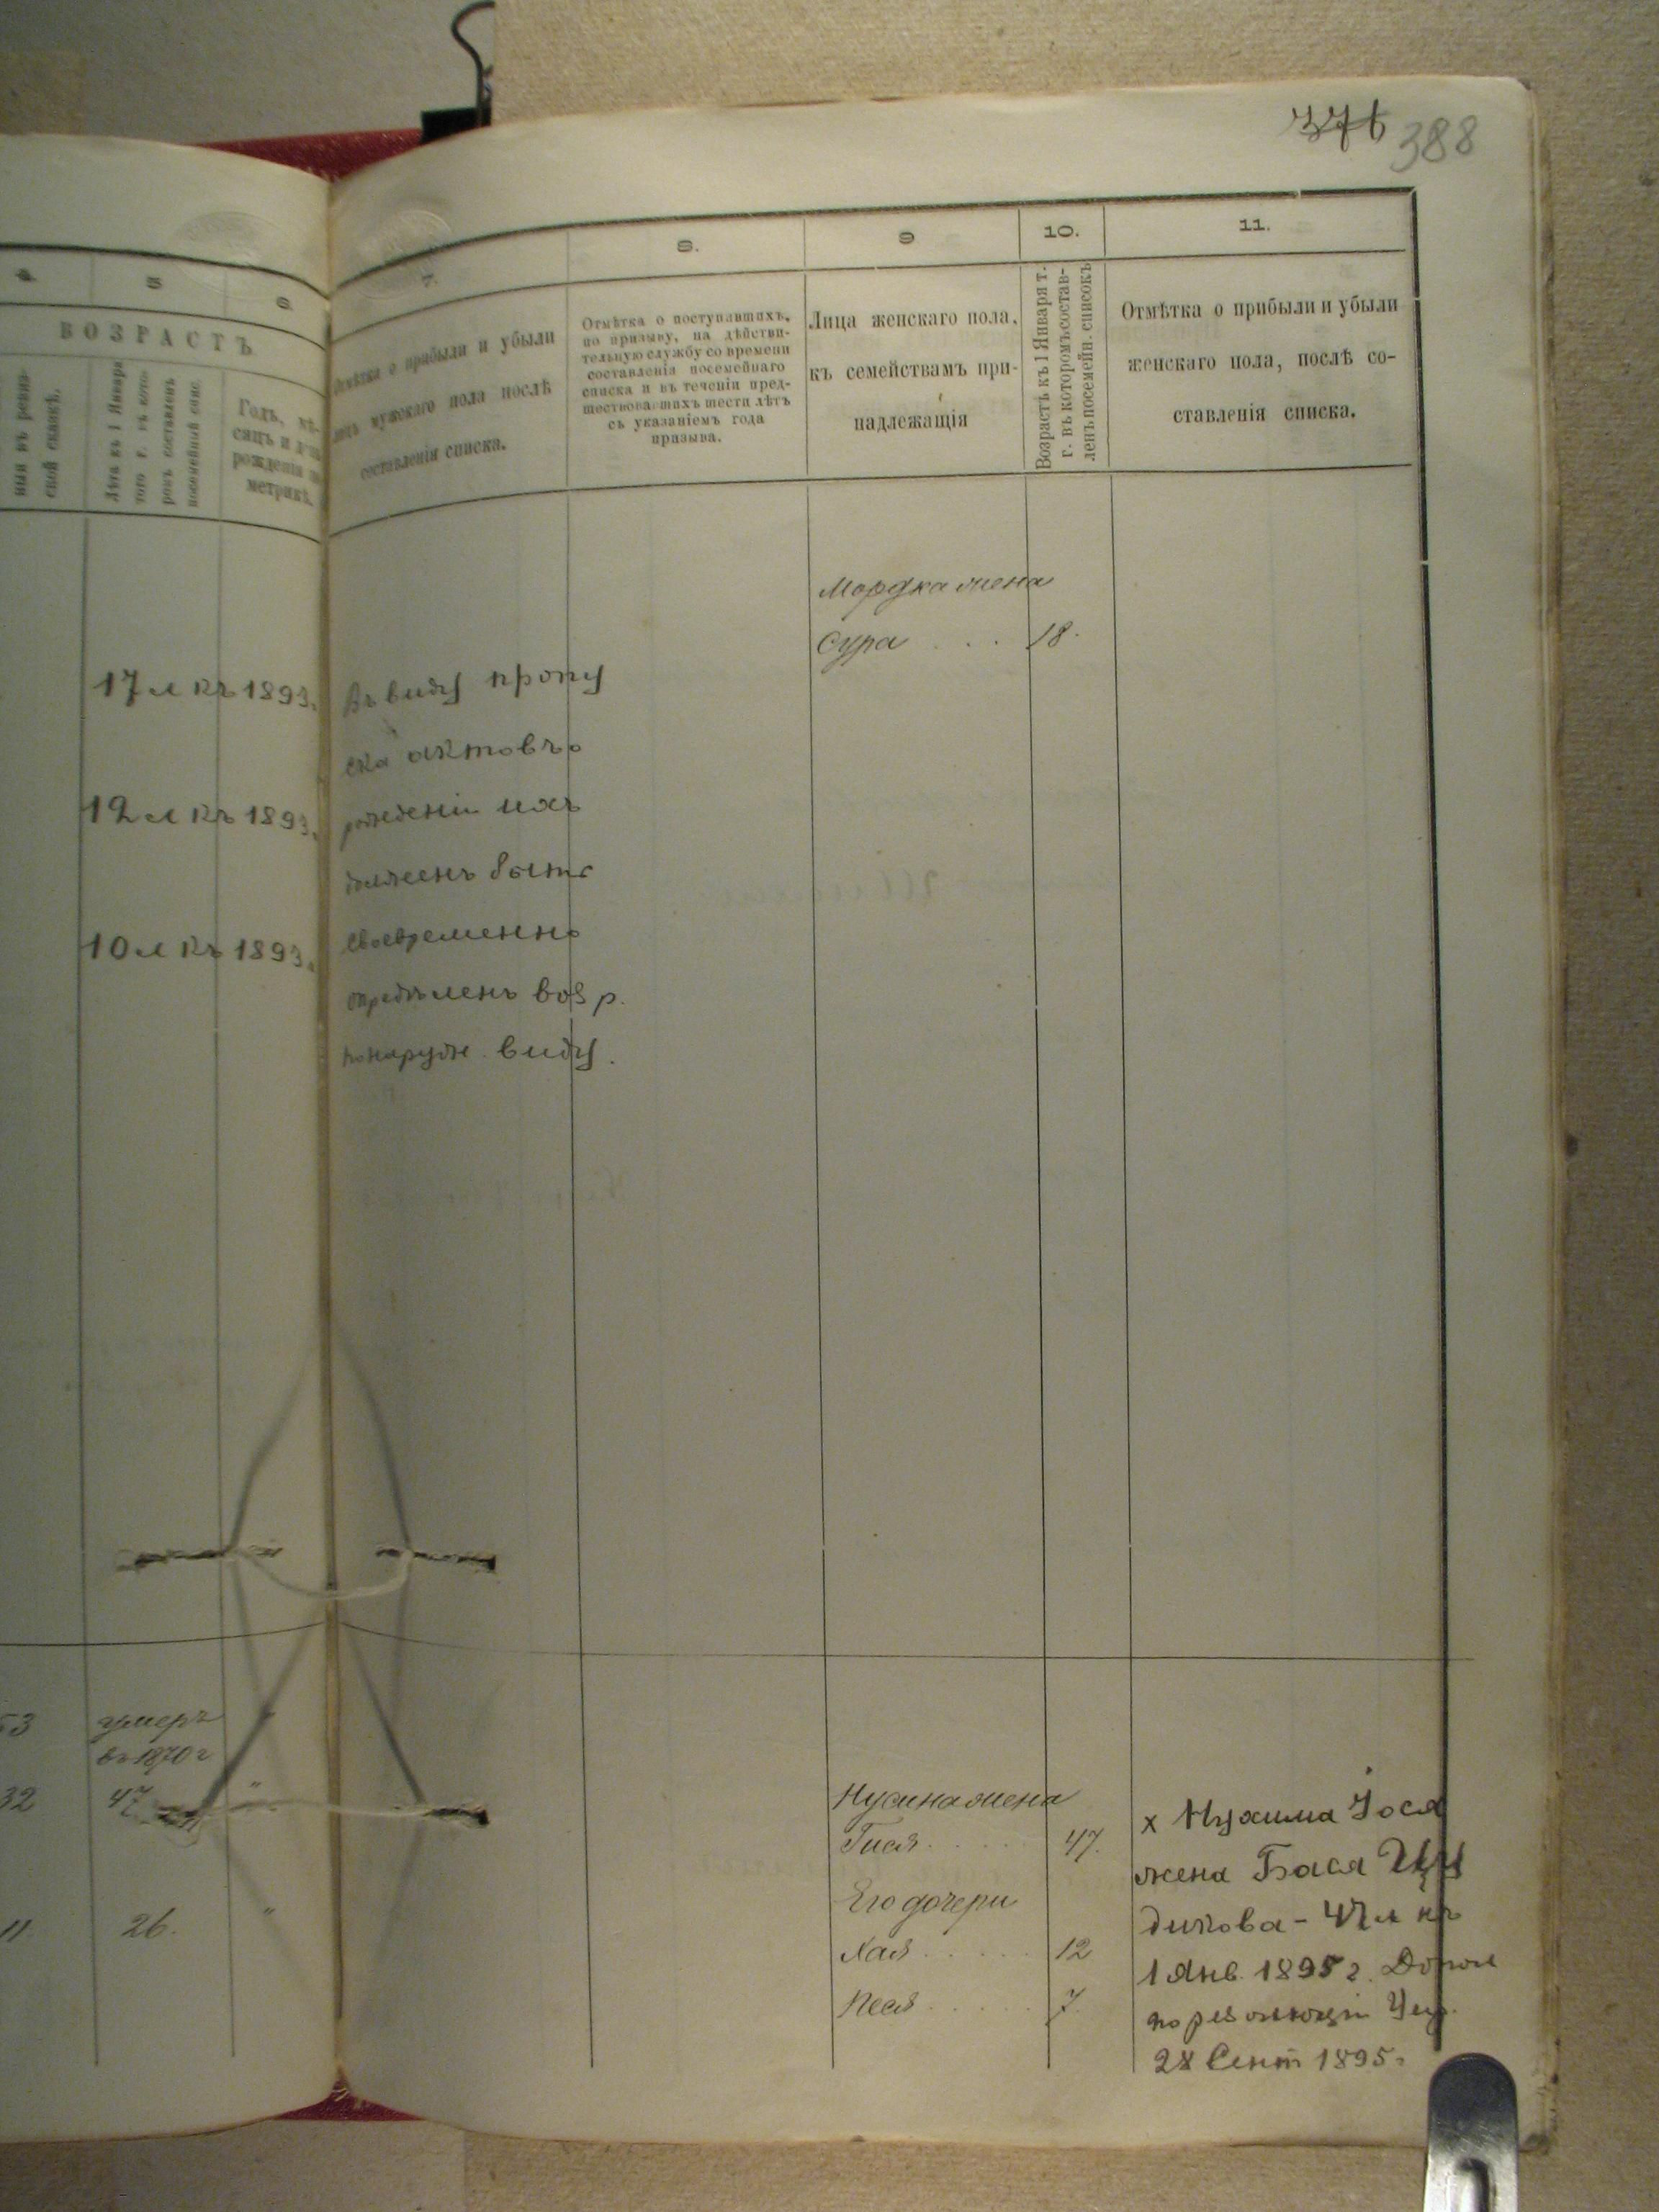 376 388
4 5 6
ВОЗРАСТЪ
ныя въ ревиз-
ской сказкѣ.
Лѣта къ 1 Января
того г. въ кото-
ромъ составленъ
посемейный спис.
Годъ, мѣ-
сяцъ и день
рожденія по
метрикѣ.
17 л къ 1893.
12 л къ 1893.
10 л къ 1893.
53 умеръ
въ 1870 г
32 47 "
11. 26. "
7. 8. 9 10. 11.
Отмѣтка о прибыли и убыли
лицъ мужскаго пола послѣ
составленія списка.
Отмѣтка о поступавшихъ,
по призыву, на дѣйстви-
тельную службу со времени
составленія посемейнаго
списка и въ теченіи пред-
шествовавшихъ шести лѣтъ
съ указаніемъ года
призыва.
Лица женскаго пола,
къ семействамъ при-
надлежащія
Возрастъ къ 1 Января т.
г. въ которомъ состав-
ленъ посемейн. списокъ
Отмѣтка о прибыли и убыли
женскаго пола, послѣ со-
ставленія списка.
Въ виду пропу
ска актовъ о
рожденіи ихъ
долженъ быть
своевременно
опредѣленъ возр.
по наружн. виду.
Мордка жена
Сура . . . 18.
Нусина жена
Гися . . . . 47.
Его дочери
Хая . . . . . 12
Песя . . . . . 7.
х Нухима Iося
жена Бася
дикова - 47 л къ
1 Янв. 1895 г.
по резолюціи
28 Сент 1895 г